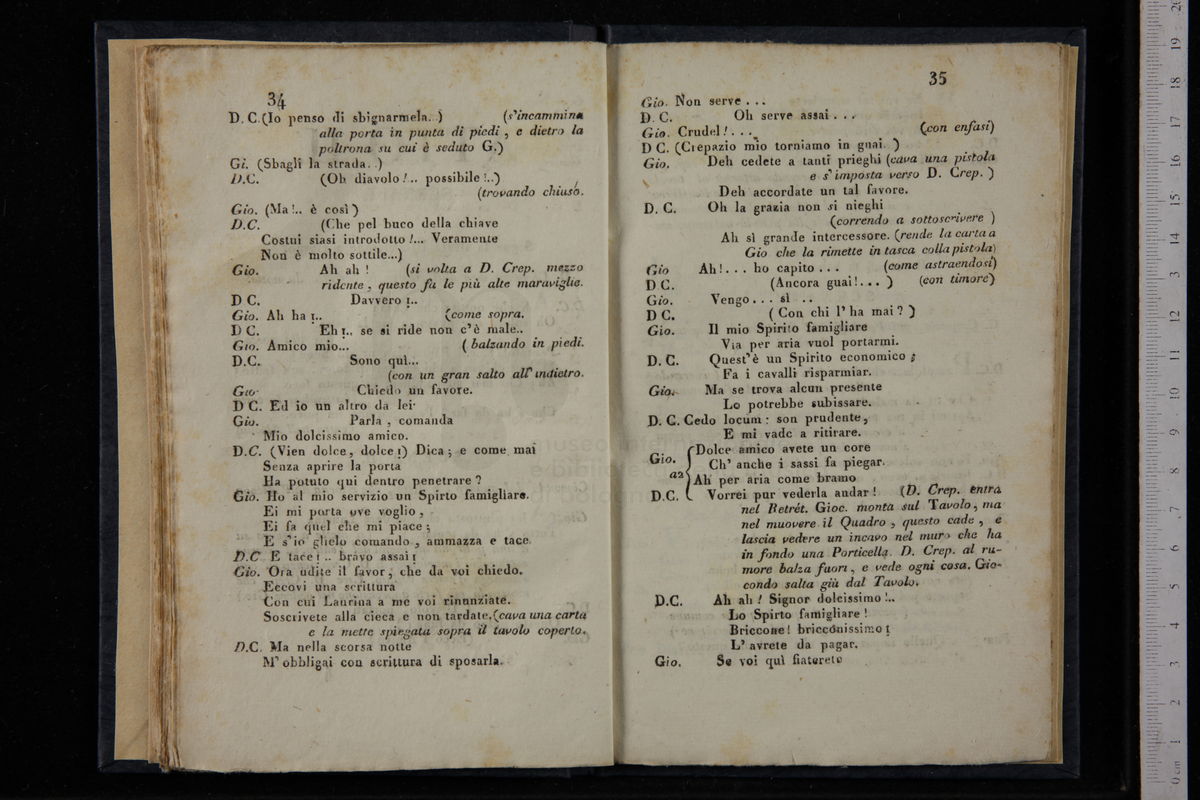 34
D. C. (Io penso di sbignarmela. ) (s'incammina
alla porta in punta di piedi , e dietro la
poltrona su cui è seduto G.)
Gi. (Sbagli la strada. .)
D.C. (Oh diavolo !.. possibile !..)
(trovando chiuso.
Gio. (Ma !.. è così )
D.C. (Che pel buco della chiave
Costui siasi introdotto !... Veramente
Non è molto sottile...)
Gio. Ah ah ! (si volta a D. Crep. mezzo
ridente , questo fà le più alte maraviglie.
D C. Davvero !..
Gio. Ah ha !.. (come sopra.
D C. Eh !.. se si ride non c'è male..
Gio. Amico mio... ( balzando in piedi.
D.C. Sono quì...
(con un gran salto all' indietro.
Gio. Chiedo un favore.
D C. Ed io un altro da lei.
Gio. Parla , comanda
Mio dolcissimo amico.
D.C. (Vien dolce, dolce !) Dica ; e come mai
Senza aprire la porta
Ha potuto qui dentro penetrare ?
Gio. Ho al mio servizio un Spirto famigliare.
Ei mi porta ove voglio ,
Ei fa quel che mi piace ;
E s'io glielo comando , ammazza e tace.
D.C E tace ! .. bravo assai !
Gio. Ora udite il favor , che da voi chiedo.
Eccovi una scrittura
Con cui Laurina a me voi rinunziate.
Soscrivete alla cieca e non tardate. (cava una carta
e la mette spiegata sopra il tavolo coperto.
D.C. Ma nella scorsa notte
M' obbligai con scrittura di sposarla.
35
Gio. Non serve . . .
D. C. Oh serve assai . . .
Gio. Crudel ! . . . (con enfasi)
D C. (Crepazio mio torniamo in guai. )
Gio. Deh cedete a tanti prieghi (cava una pistola
e s' imposta verso D. Crep. )
Deh accordate un tal favore.
D. C. Oh la grazia non si nieghi
(correndo a sottoscrivere )
Ah sì grande intercessore. (rende la carta a
Gio che la rimette in tasca colla pistola)
Gio Ah ! . . . ho capito . . . (come astraendosi)
D C. (Ancora guai ! . . . ) (con timore)
Gio. Vengo . . . sì . .
D C. ( Con chi l' ha mai ? )
Gio. Il mio Spirito famigliare
Via per aria vuol portarmi.
D. C. Quest' è un Spirito economico ;
Fa i cavalli risparmiar.
Gio. Ma se trova alcun presente
Lo potrebbe subissare.
D. C. Cedo locum : son prudente ,
E mi vado a ritirare.
Gio. Dolce amico avete un core
Ch' anche i sassi fa piegar.
a2 Ah per aria come bramo
D.C. Vorrei pur vederla andar ! (D. Crep. entra
nel Retrét. Gioc. monta sul Tavolo , ma
nel muovere il Quadro , questo cade , e
lascia vedere un incavo nel muro che ha
in fondo una Porticella. D. Crep. al ru-
more balza fuori , e vede ogni cosa. Gio-
condo salta giù dal Tavolo.
D.C. Ah ah ! Signor dolcissimo !..
Lo Spirto famigliare !
Briccone ! bricconissimo !
L' avrete da pagar.
Gio. Se voi quì fiaterete